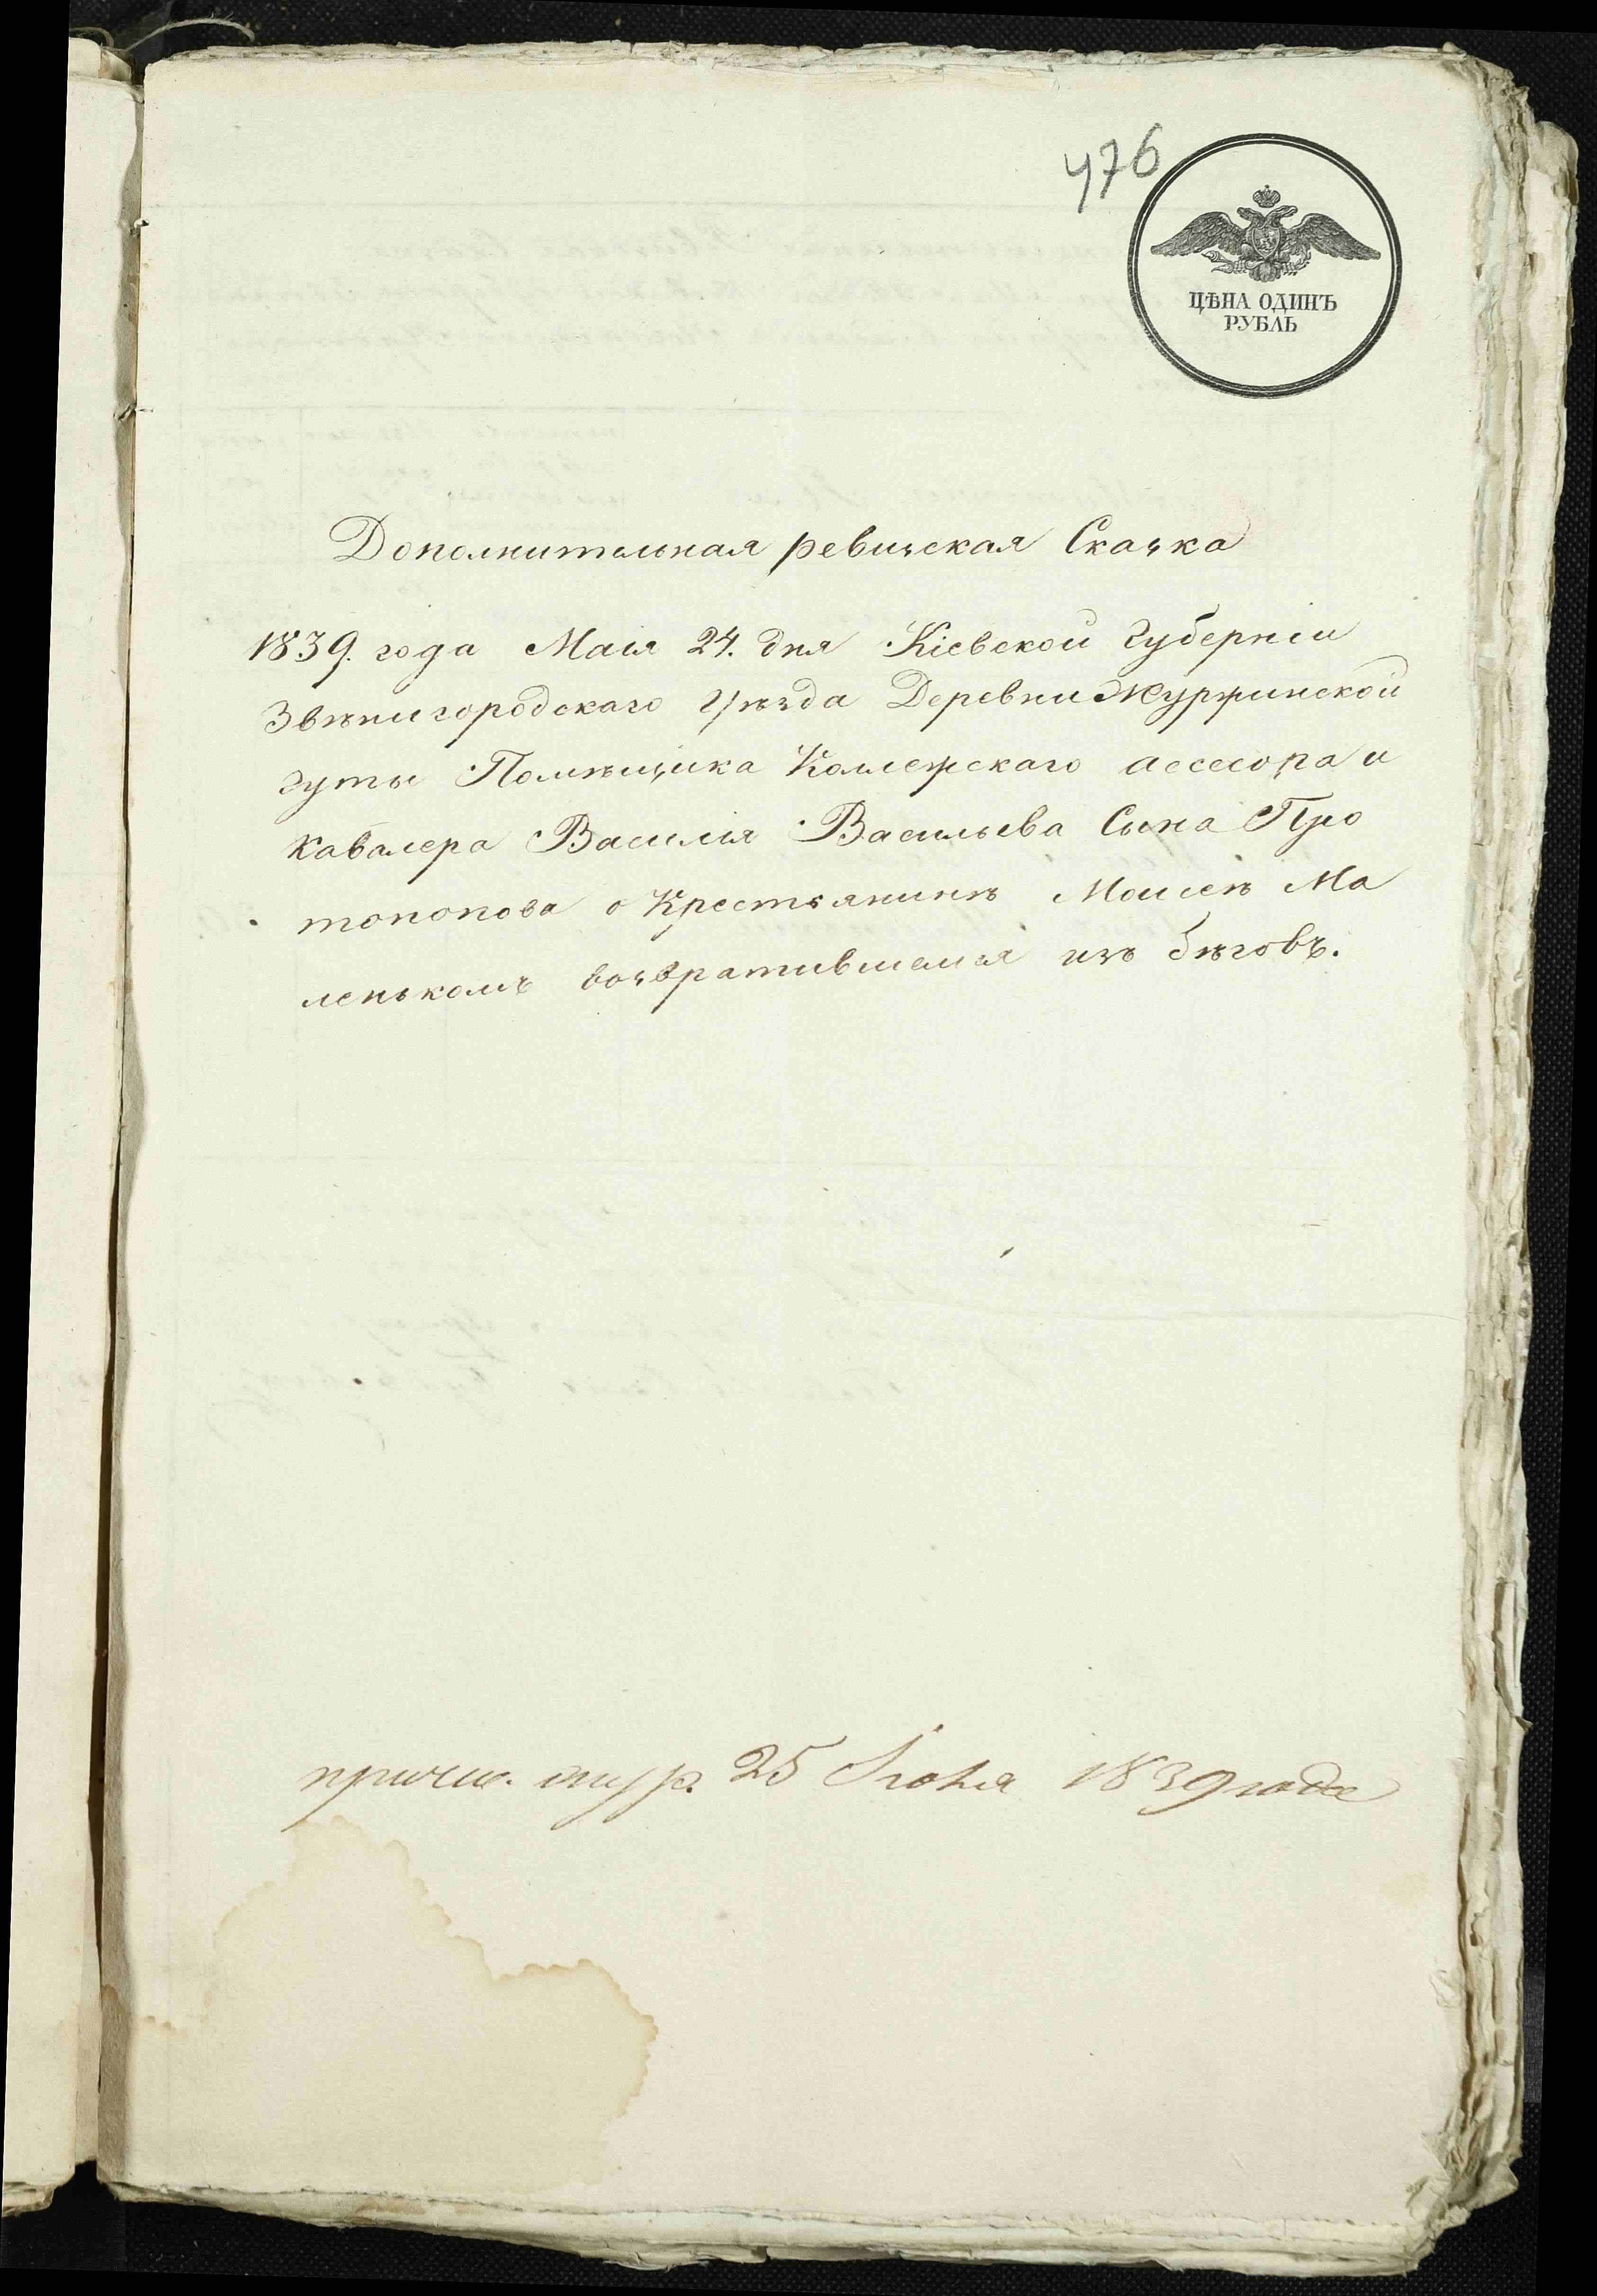 476
ЦѢНА ОДИНЪ
РУБЛЬ
Дополнительная ревизская Сказка
1839. года Маія 24. дня Кіевской Губерніи
Звѣнигородскаго Уѣзда Деревни Журжинской
гуты Помѣщика Колежскаго асесора и
Кавалера Василія Васильева Сына Про
топопова о Крестьянинѣ Моисеѣ Ма
ленькомъ возвратившемся изъ бѣговъ.
25 Іюня 1839 года